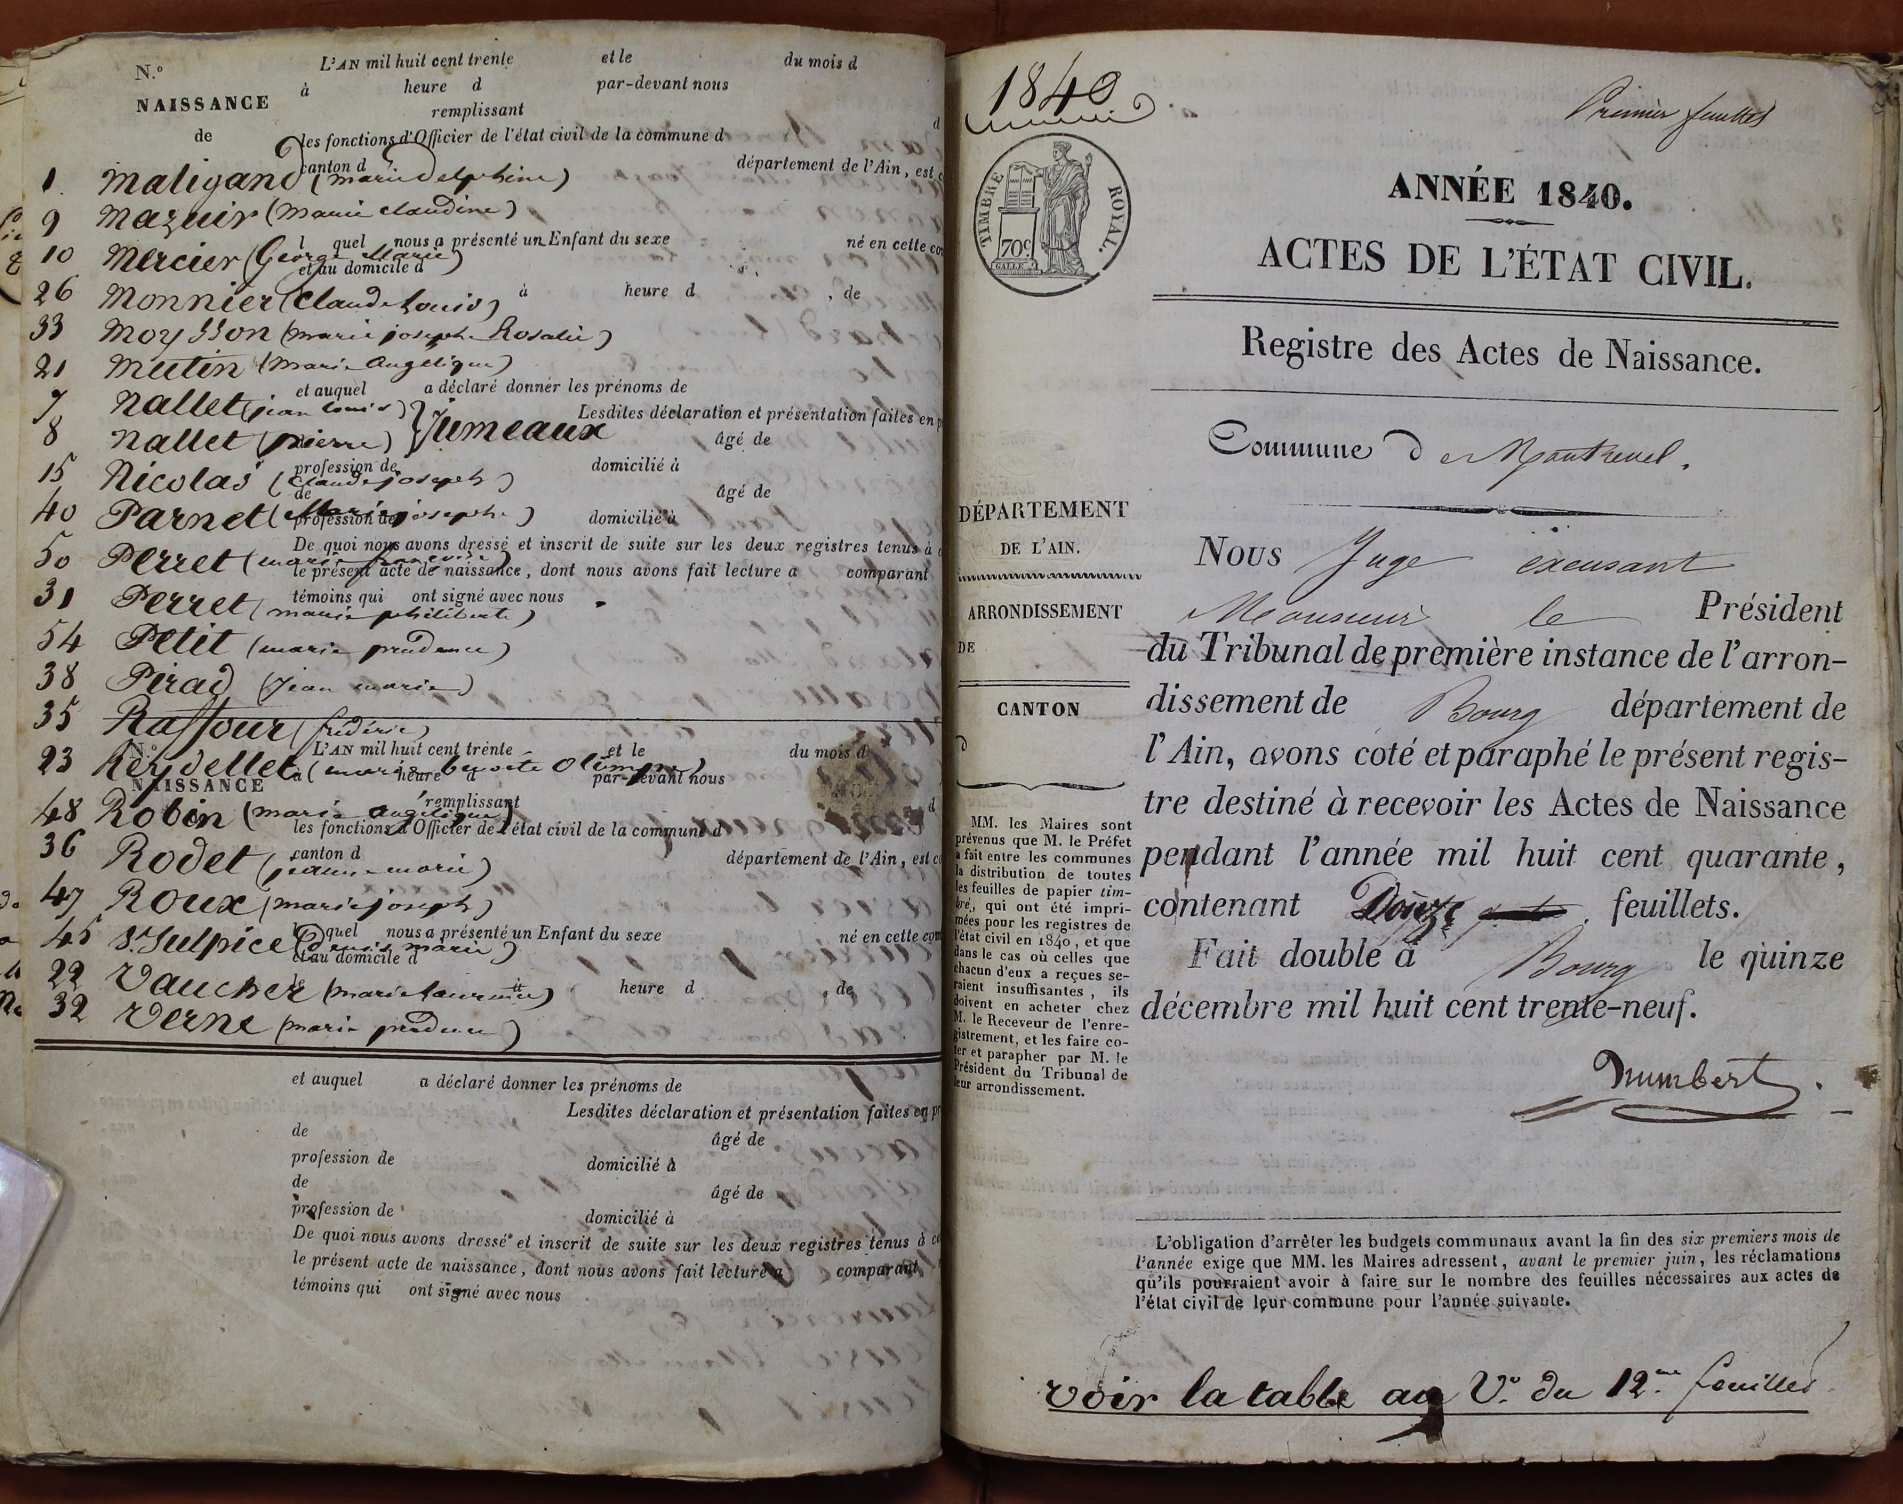 N.º
NAISSANCE
de
L'AN mil huit cent trente et le du mois d
à heure d par-devant nous
remplissant
les fonctions d'Officier de l'état civil de la commune d
canton d département de l'Ain, est
1. Maligand (marie delphine)
9 Mazuir (marie claudine)
l quel nous a présenté un Enfant du sexe né en cette co
10 Mercier (George Marie)
et au domicile d
26 Monnier (Claude Louis)
à heure d , de
33 Moysson (marie joseph Rosalie)
21 Mutin (Marie Angélique)
et auquel a déclaré donner les prénoms de
7 Nallet (jean louis)
Lesdites déclaration et présentation faites en p
8 Nallet (pierre) } Jumeaux
âgé de
profession de domicilié à
15 Nicolas (Claude joseph)
de âgé de
40 Parnet (Marie josephe)
profession de domicilié à
De quoi nous avons dressé et inscrit de suite sur les deux registres tenus à
50 Perret (marie
le présent acte de naissance, dont nous avons fait lecture a comparant
témoins qui ont signé avec nous
31 Perret (marie philiberte)
54 Petit (marie prudence)
38 Pirad (Jean marie)
35 Raffour (fréderic)
N.º L'AN mil huit cent trente et le du mois d
23 Reydellet (marie benoite Olimpe)
NAISSANCE à heure d par-devant nous
remplissant
48 Robin (marie angélique)
les fonctions d'Officier de l'état civil de la commune d
canton d département de l'Ain, est co
36 Rodet (jeanne-marie)
47 Roux (marie joseph)
l quel nous a présenté un Enfant du sexe né en cette com
45 St. Sulpice (Denis marie)
et au domicile d
22 Vaucher (marie laurence)
heure d , de
32 Verne (marie prudence)
et auquel a déclaré donner les prénoms de
Lesdites déclaration et présentation faites en pr
de âgé de
profession de domicilié à
de âgé de
profession de domicilié à
De quoi nous avons dressé et inscrit de suite sur les deux registres tenus à c
le présent acte de naissance, dont nous avons fait lecture a comparant
témoins qui ont signé avec nous
1840
Premier feuillet
TIMBRE ROYAL.
70c
ANNÉE 1840.
ACTES DE L'ÉTAT CIVIL.
Registre des Actes de Naissance.
Commune de Montrevel.
DÉPARTEMENT
DE L'AIN.
ARRONDISSEMENT
DE
CANTON
d
MM. les Maires sont
prévenus que M. le Préfet
a fait entre les communes
la distribution de toutes
les feuilles de papier tim-
bré, qui ont été impri-
mées pour les registres de
l'état civil en 1840, et que
dans le cas où celles que
chacun d'eux a reçues se-
raient insuffisantes, ils
doivent en acheter chez
M. le Receveur de l'enre-
gistrement, et les faire co-
ter et parapher par M. le
Président du Tribunal de
leur arrondissement.
Nous Juge excusant
Monsieur le Président
du Tribunal de première instance de l'arron-
dissement de Bourg département de
l'Ain, avons coté et paraphé le présent regis-
tre destiné à recevoir les Actes de Naissance
pendant l'année mil huit cent quarante,
contenant Douze feuillets.
Fait double à Bourg le quinze
décembre mil huit cent trente-neuf.
L'obligation d'arrêter les budgets communaux avant la fin des six premiers mois de
l'année exige que MM. les Maires adressent, avant le premier juin, les réclamations
qu'ils pourraient avoir à faire sur le nombre des feuilles nécessaires aux actes de
l'état civil de leur commune pour l'année suivante.
voir la table au V.º du 12.me feuillet